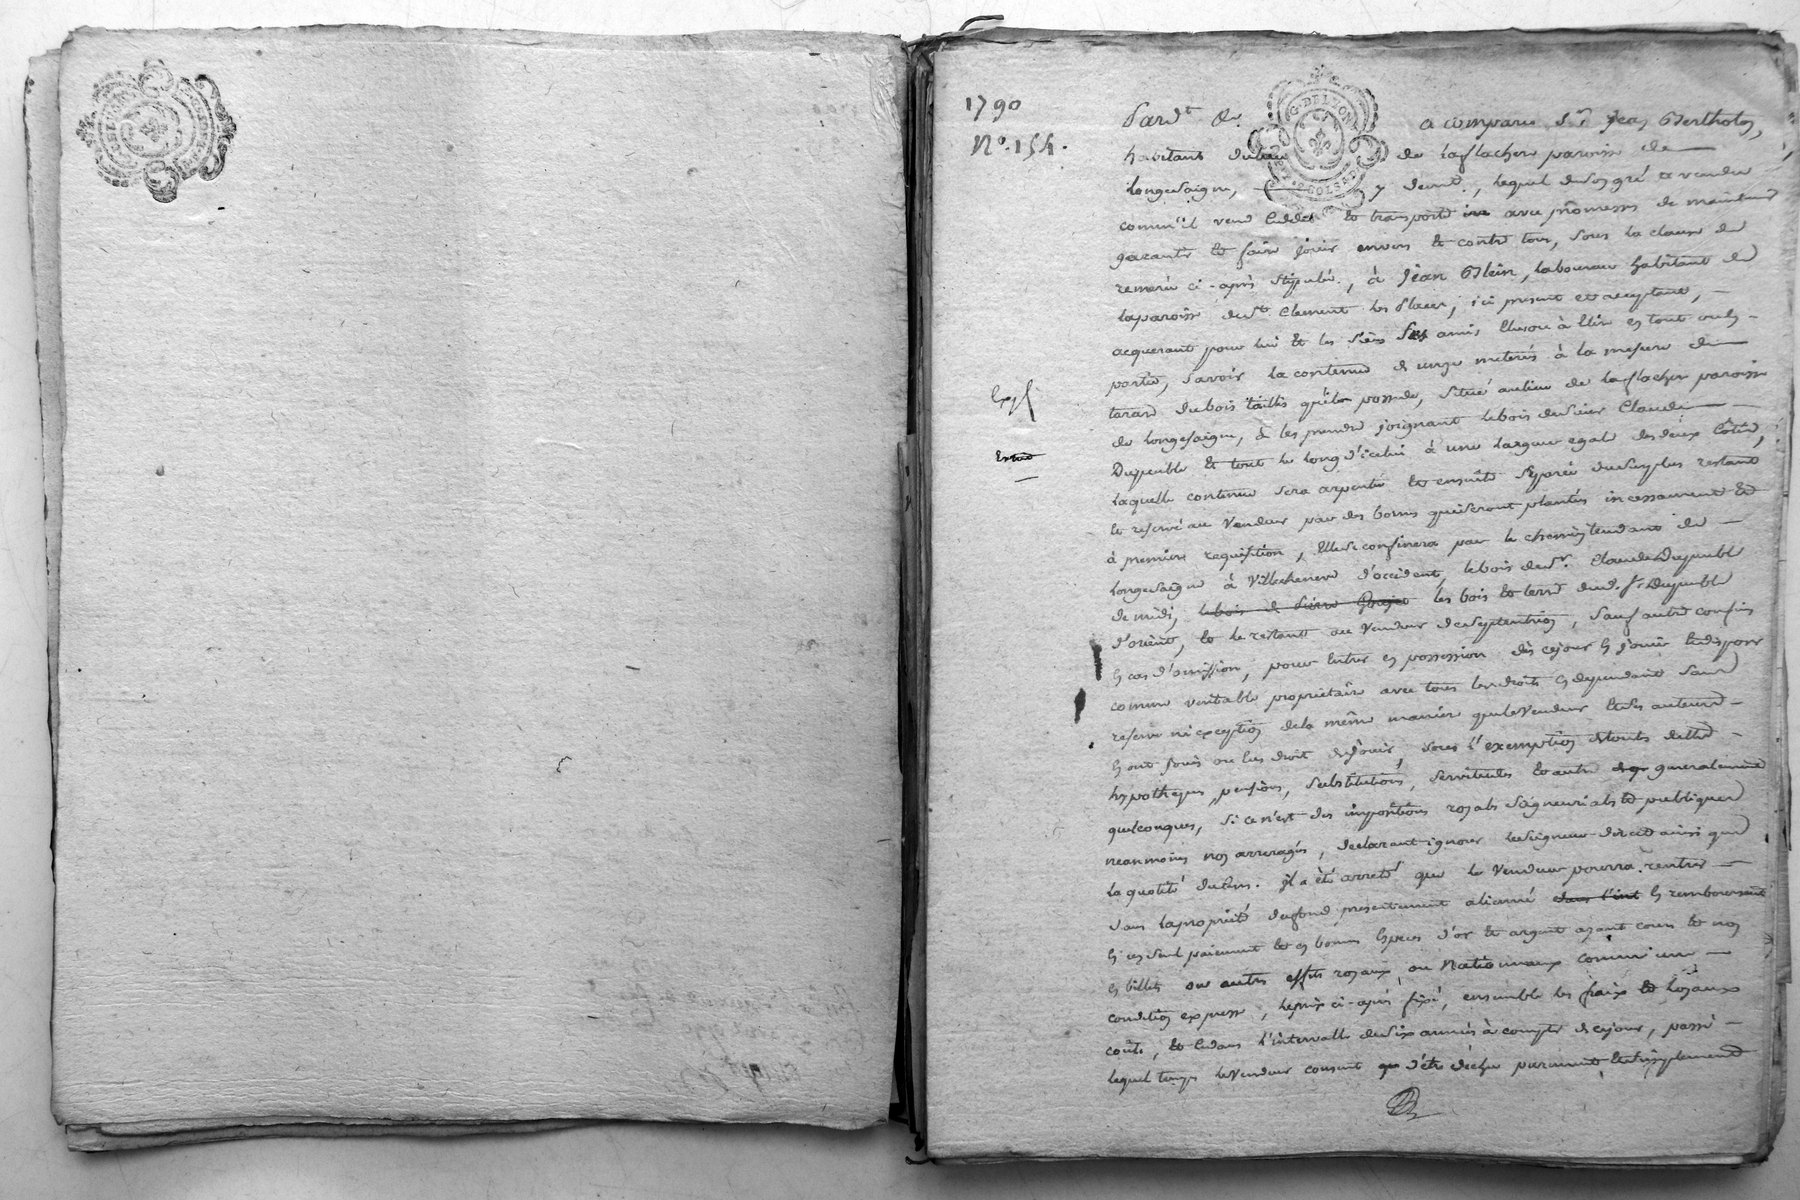 1790
N°. 154.
G. DELZONT
Pard.t &c. a comparu s.r Jean Bertholon,
habitant du lieu de la flachere paroisse de
Longesaigne, y demt., lequel de son gré a vendu
comm'il vend cedde et transporte avec promesses de maintenir
garantir et faire jouir envers et contre tous, sous la clause de
remeré ci-après stipulé, à Jean Blein, laboureur habitant de
la paroisse de St. Clement les places, ici present et acceptant,
acquerant pour lui et les siens ses amis elus ou à elire en tout ou en
partie, savoir la contenue de onze meterés à la mesure de
tarare du bois taillis qu'il possede, situé au lieu de la flachere paroisse
de longesaigne, à les prendre joignant le bois de sieur Claude
Dupeuble et tout le long d'icelui à une largeur egale des deux côtés,
laquelle contenue sera arpentée et ensuite separée du surplus restant
et reservé au vendeur par des bornes qui seront plantées incessamment et
à premiere requisition, elle se confinera par le chemin tendant de
longesaigne à Villechenève d'occident, le bois de sr. Claude Dupeuble
de midi, le bois de Pierre les bois et terre dud. sr. Dupeuble
d'orient, et le restant au vendeur de septentrion, sauf autres confins
en cas d'omission, pour entrer en possession dès ce jour en jouir et disposer
comme veritable proprietaire avec tous les droits en dependants sans
reserve ni exception de la même manière que le vendeur et ses auteurs
en ont joui ou eu droit de jouir, sous l'exemption de toutes dettes
hypotheques, pensions, substitutions, servitudes et autres generalement
quelconques, si ce n'est des impositions royales seigneuriales et publiques
neanmoins non arreragés, declarant ignorer le seigneur direct ainsi que
la quotité du cens. il a été arreté que le vendeur pourra rentrer
dans la proprieté du fond presentement aliené dans l'int en remboursant
en un seul paiement et en bonnes especes d'or et argent ayant cours et non
en billets ou autres effets royaux ou Nationnaux comm'une
condition expresse, le prix ci-après fixé, ensemble les fraix et loyaux
coûts, et ce dans l'intervalle de six années à compter de ce jour, passé
lequel temps le vendeur consent d'être déchu purement et simplement
Expé
Extrait